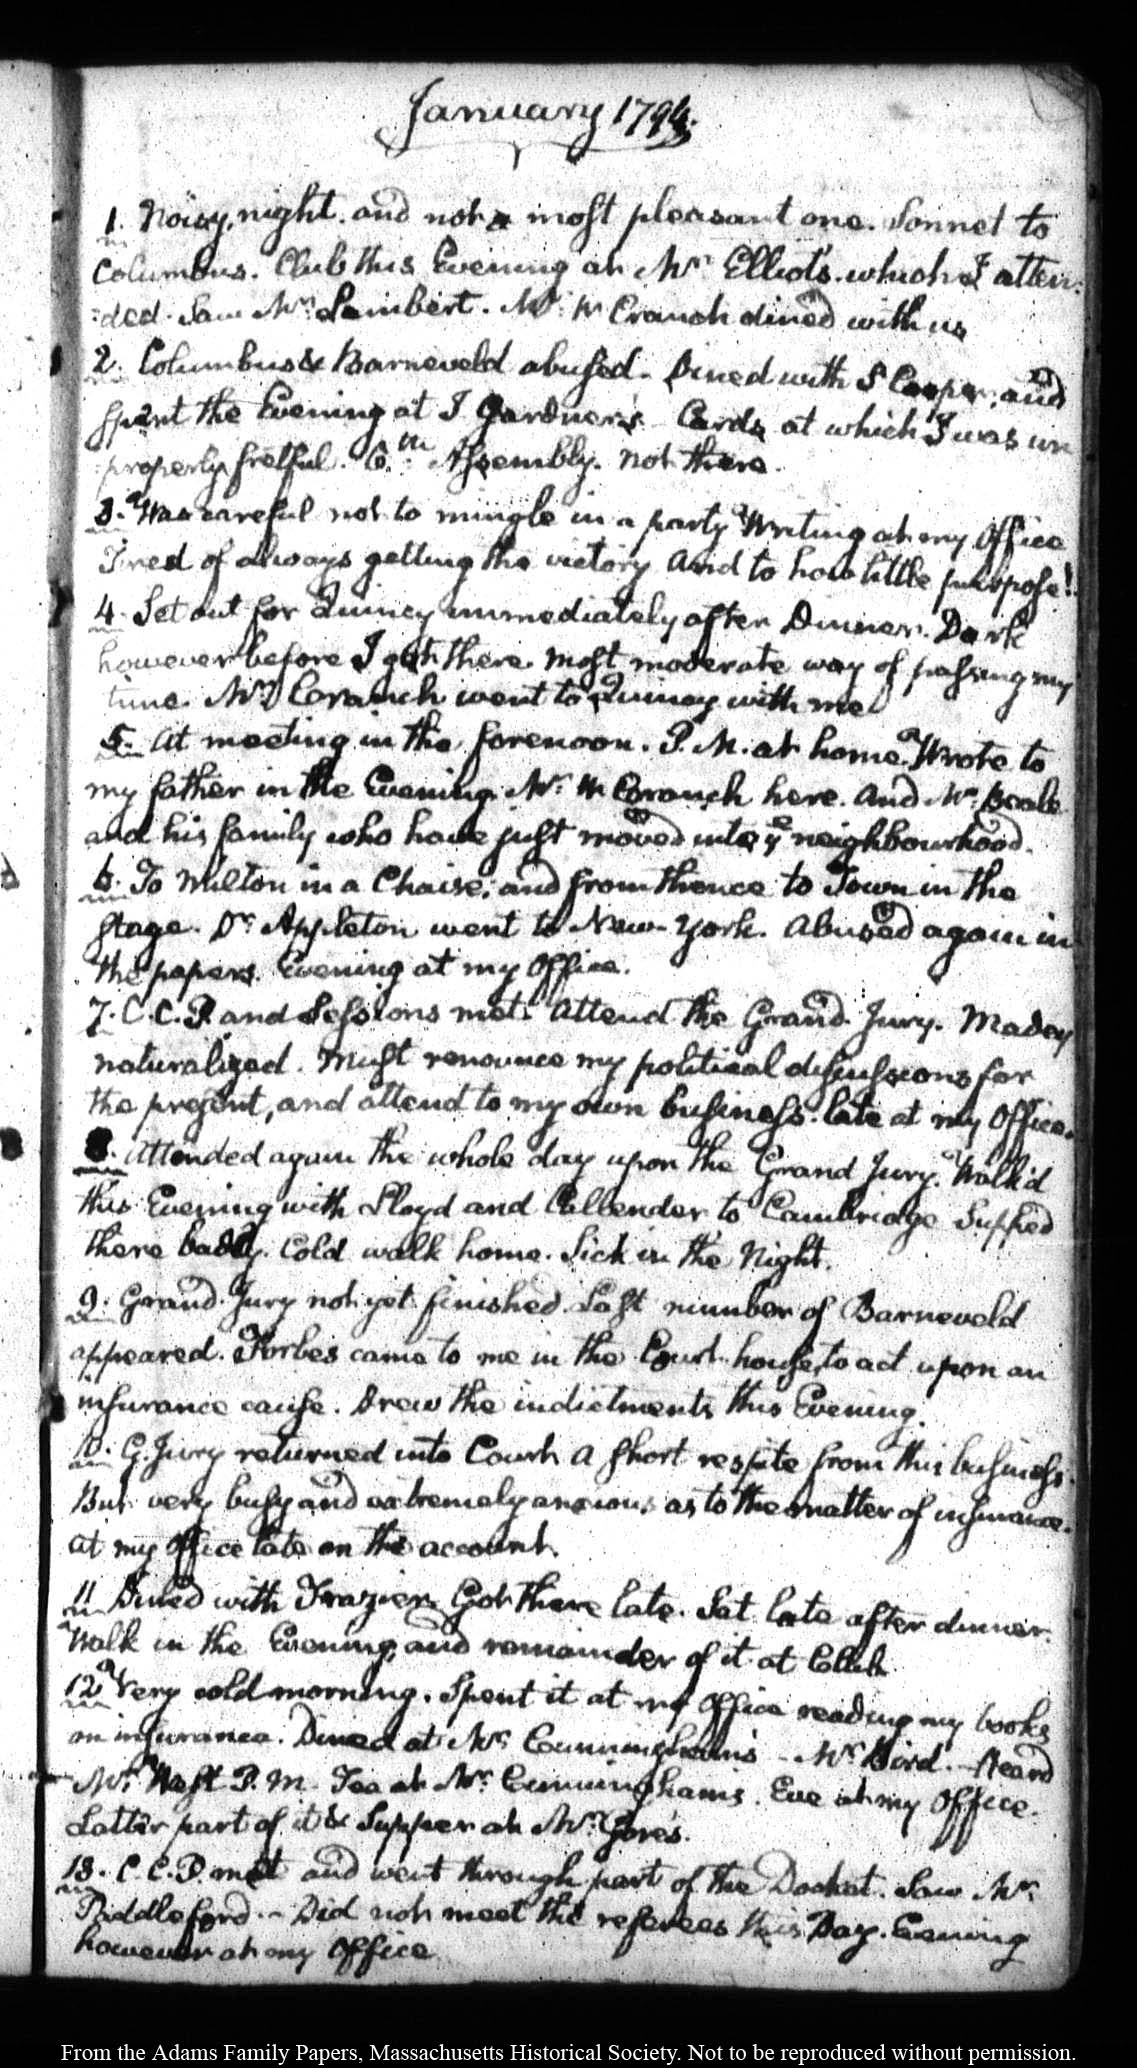 January 1794.
1. Noisy, night. and not a most pleasant one. Sonnet to
Columbus. Club this Evening at Mr. Elliot's. which I atten:
:ded. Saw Mr. Lambert. Mr. W Cranch dined with us
2. Columbus & Barneveld abused. Dined with S Cooper, and
spent the Evening at J. Gardner's. Cards at which I was un
:properly fretful. 6.th Assembly. not there.
3. Was careful not to mingle in a party Writing at my Office
Tired of always getting the victory and to how little purpose!
4. Set out for Quincy immediately after Dinner. Dark
however before I got there. most moderate way of passing my
time. Mr. Cranch went to Quincy with me
5. At meeting in the forenoon. P. M. at home. Wrote to
my father in the Evening. Mr. W Cranch here. And Mr. Beale
and his family who have just moved into ye neighbourhood.
6. To Milton in a Chaise, and from thence to Town in the
Stage. Dr. Appleton went to New-York. Abused again in
the papers. Evening at my Office.
7. C. C. P. and Sessions met. Attend the Grand Jury. Madey
naturalized. Must renounce my political discussions for
the present, and attend to my own business. late at my Office.
8. Attended again the whole day upon the Grand Jury. Walk'd
this Evening with Lloyd and Callender to Cambridge Supped
there badly. Cold walk home. Sick in the Night.
9. Grand Jury not yet finished. Last number of Barneveld
appeared. Forbes came to me in the Court house, to act upon an
insurance cause. Drew the indictments this Evening.
10. G. Jury returned into Court a short respite from this business.
But very busy and extremely anxious as to the matter of insurance.
at my Office late on this account.
11 Dined with Frazier. Got there late. Sat late after dinner.
Walk in the Evening, and remainder of it at Club
12 Very cold morning. Spent it at my Office reading my books
on insurance. Dined at Mr. Cunningham's - Mr. Bird. Heard
Mr. West P. M. Tea at Mr. Cunninghams. Eve at my Office.
Latter part of it & Supper at Mr. Gore's.
13. C. C. P. met and went through part of the Docket. Saw Mr.
Paddleford. - Did not meet the referees this Day. Evening
however at my Office
From the Adams Family Papers, Massachusetts Historical Society. Not to be reproduced without permission.